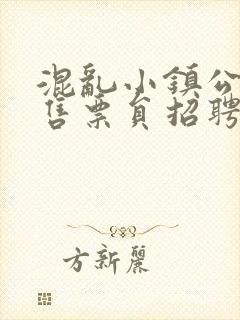 混亂小鎮公
售票員招聘
方新麗